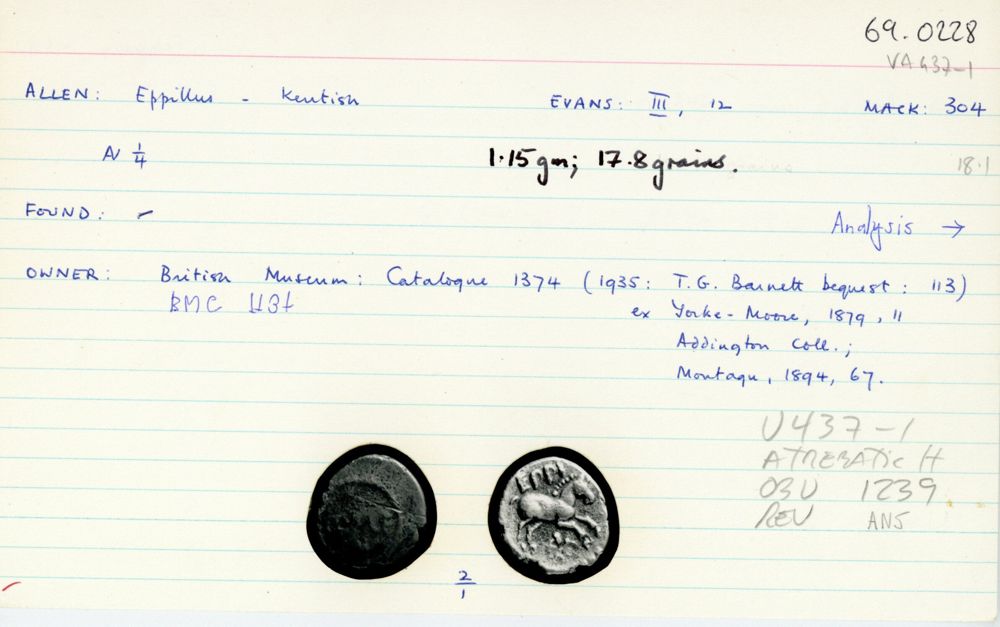 69.0228
VA 437-1
ALLEN: Eppillus - Kentish EVANS: III, 12 MACK: 304
AV 1/4 1.15 gm; 17.8 grains. 18.1
FOUND: -
Analysis →
OWNER: British Museum: Catalogue 1374 (1935: T.G. Barnett bequest: 113)
BMC 1137
ex Yorke-Moore, 1879, 11
Addington Coll.;
Montagu, 1894, 67.
V437-1
ATREBATIC H
OBV 1239
REV ANS
EPPI
2/1